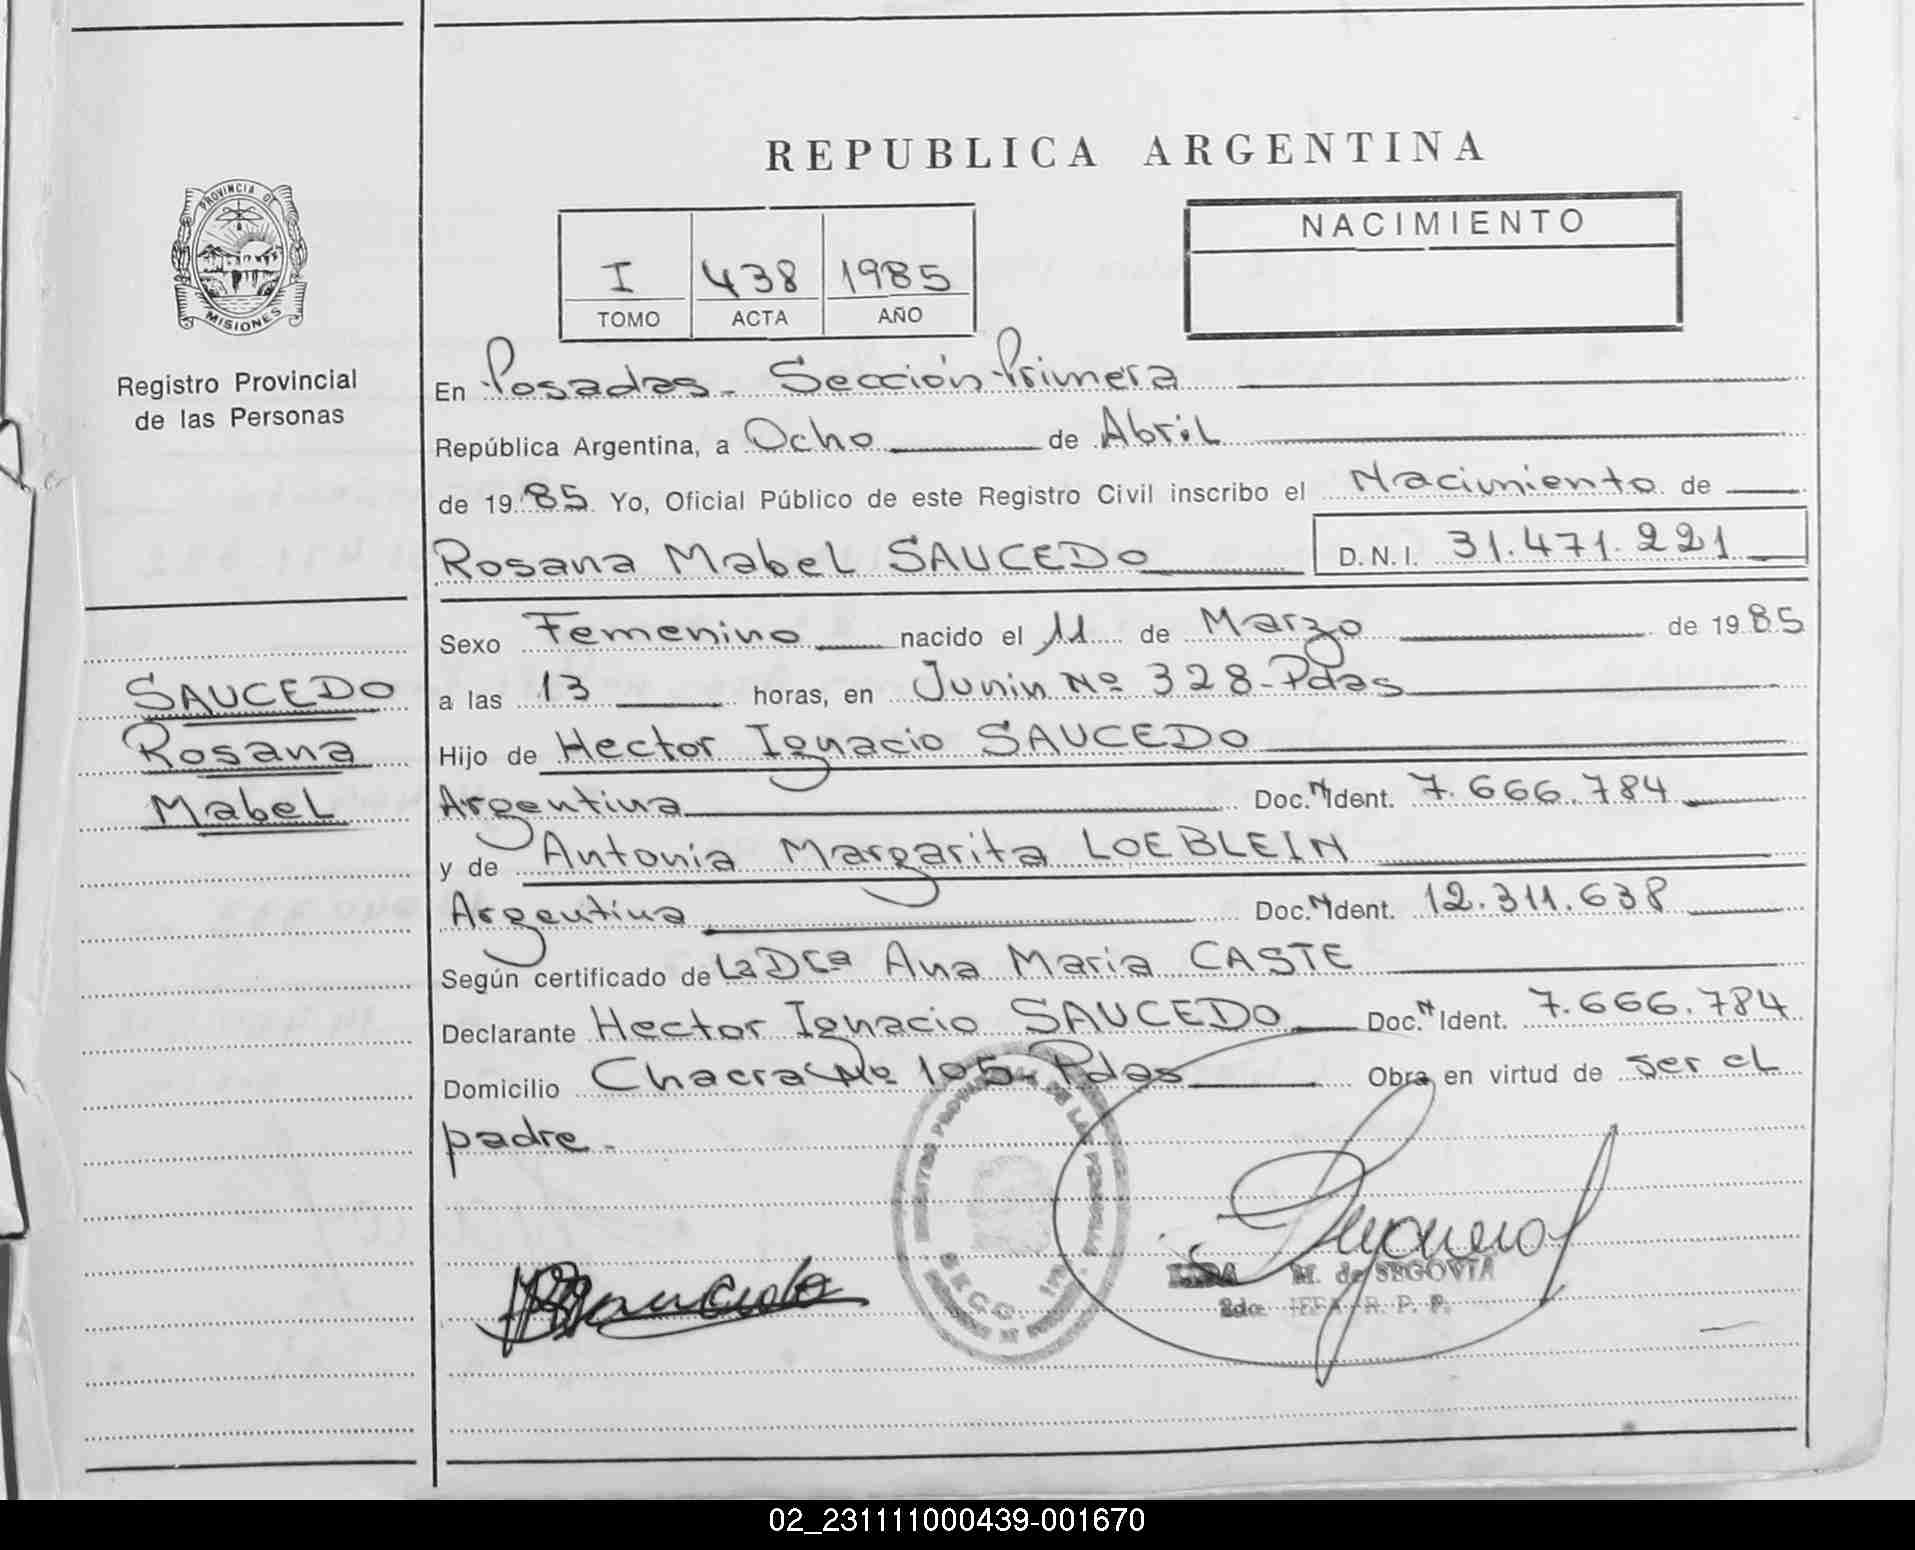 REPUBLICA ARGENTINA
PROVINCIA DE
MISIONES
Registro Provincial
de las Personas
I 438 1985
TOMO ACTA AÑO
NACIMIENTO
En Posadas - Sección Primera
República Argentina, a Ocho de Abril
de 1985 Yo, Oficial Público de este Registro Civil inscribo el Nacimiento de
Rosana Mabel SAUCEDO D.N.I. 31.471.221
SAUCEDO
Rosana
Mabel
Sexo Femenino nacido el 11 de Marzo de 1985
a las 13 horas, en Junin Nº 328-Pdas
Hijo de Hector Ignacio SAUCEDO
Argentina Doc. N Ident. 7.666.784
y de Antonia Margarita LOEBLEIN
Argentina Doc. N Ident. 12.311.638
Según certificado de La Dra Ana Maria CASTE
Declarante Hector Ignacio SAUCEDO Doc. N Ident. 7.666.784
Domicilio Chacra Nº 105- Pdas Obra en virtud de ser el
padre.-
M. de SEGOVIA
2do. JEFA R. P. P.
02_231111000439-001670